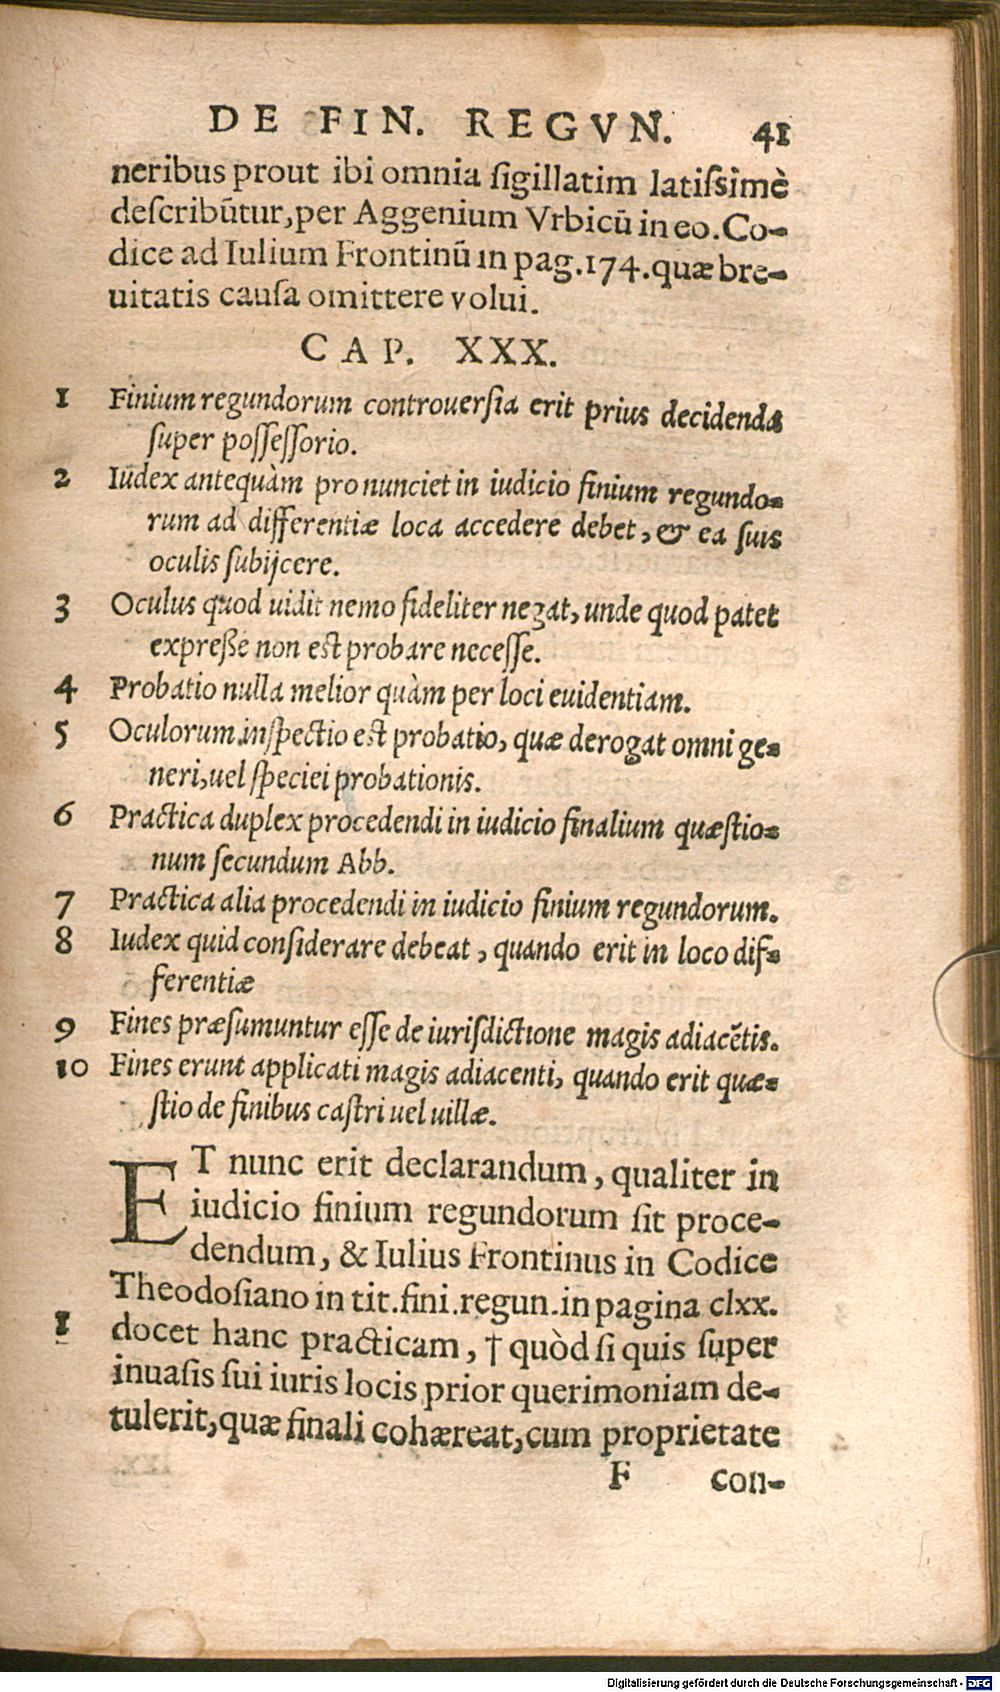 DE FIN. REGVN. 41
neribus prout ibi omnia sigillatim latissimè
describūtur, per Aggenium Vrbicū in eo. Co-
dice ad Iulium Frontinū in pag. 174. quæ bre-
uitatis causa omittere volui.
CAP. XXX.
1 Finium regundorum controuersia erit prius decidenda
super possessorio.
2 Iudex antequàm pronunciet in iudicio finium regundo-
rum ad differentiæ loca accedere debet, & ea suis
oculis subijcere.
3 Oculus quod uidit nemo fideliter negat, unde quod patet
expreße non est probare necesse.
4 Probatio nulla melior quàm per loci euidentiam.
5 Oculorum inspectio est probatio, quæ derogat omni ge-
neri, uel speciei probationis.
6 Practica duplex procedendi in iudicio finalium quæstio-
num secundum Abb.
7 Practica alia procedendi in iudicio finium regundorum.
8 Iudex quid considerare debeat, quando erit in loco dif-
ferentiæ
9 Fines præsumuntur esse de iurisdictione magis adiacētis.
10 Fines erunt applicati magis adiacenti, quando erit quæ-
stio de finibus castri uel uillæ.
ET nunc erit declarandum, qualiter in
iudicio finium regundorum sit proce-
dendum, & Iulius Frontinus in Codice
Theodosiano in tit. fini. regun. in pagina clxx.
1 docet hanc practicam, † quòd si quis super
inuasis sui iuris locis prior querimoniam de-
tulerit, quæ finali cohæreat, cum proprietate
F con-
Digitalisierung gefördert durch die Deutsche Forschungsgemeinschaft - DFG